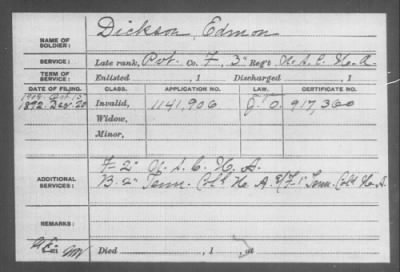 Dickson, Edmon
NAME OF SOLDIER:
SERVICE: Late rank, Pvt. Co. F, 3" Reg't U.S.C. He. A.
TERM OF SERVICE: Enlisted , 1 Discharged , 1
DATE OF FILING. CLASS. APPLICATION NO. LAW. CERTIFICATE NO.
1892. Dec. 20 Invalid, 1141,906 917,360
Widow,
Minor,
ADDITIONAL SERVICES:
F-2" U.S.C. H. A.
B. 2" Tenn. Cold He. A. & F. 1" Tenn. Cold He. A.
REMARKS:
Died , 1 , at